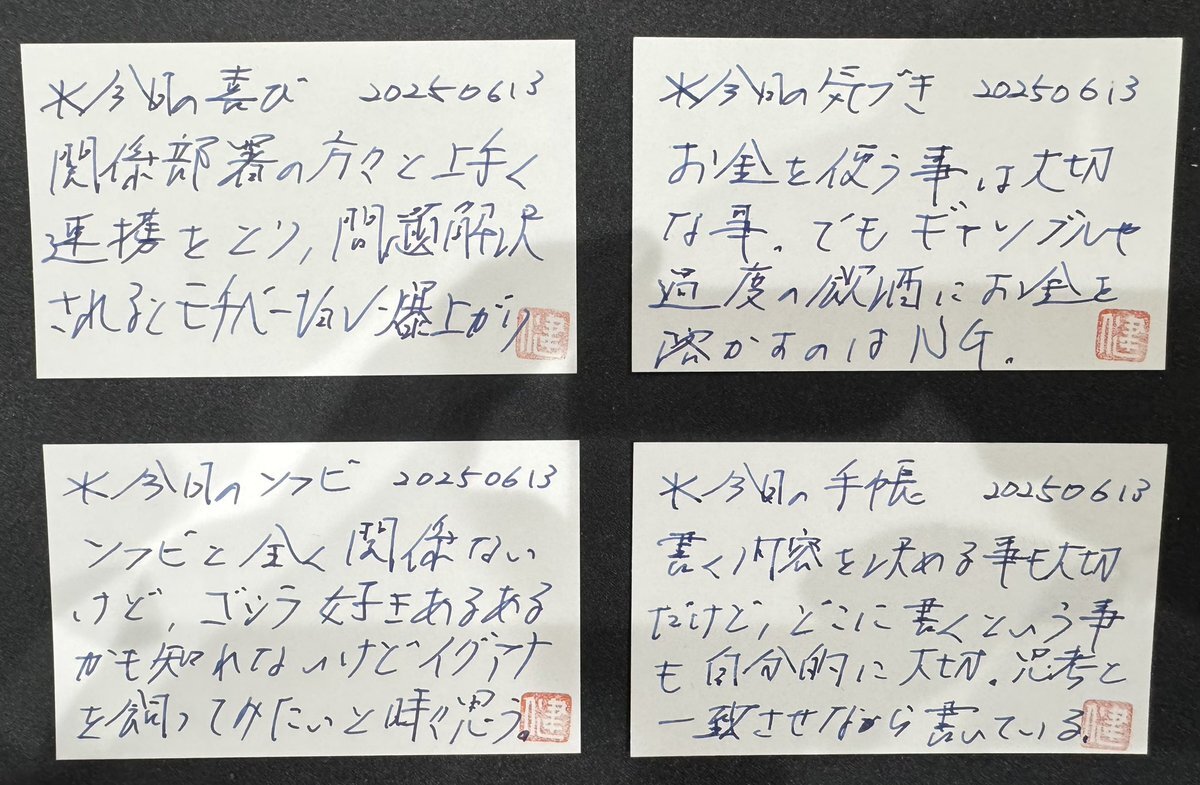 ※今日の喜び 20250613
関係部署の方々と上手く
連携をとり，問題解決
されるとモチベーション爆上がり
健
※今日の気づき 20250613
お金を使う事は大切
な事。でもギャンブルや
過度の飲酒にお金を
溶かすのはNG.
健
※今日のソフビ 20250613
ソフビと全く関係ない
けど，ゴジラ好きあるある
かも知れないけどイグアナ
を飼ってみたいと時々思う。
健
※今日の手帳 20250613
書く内容を決める事も大切
だけど，どこに書くという事
も自分的に大切。思考と
一致させながら書いている。
健